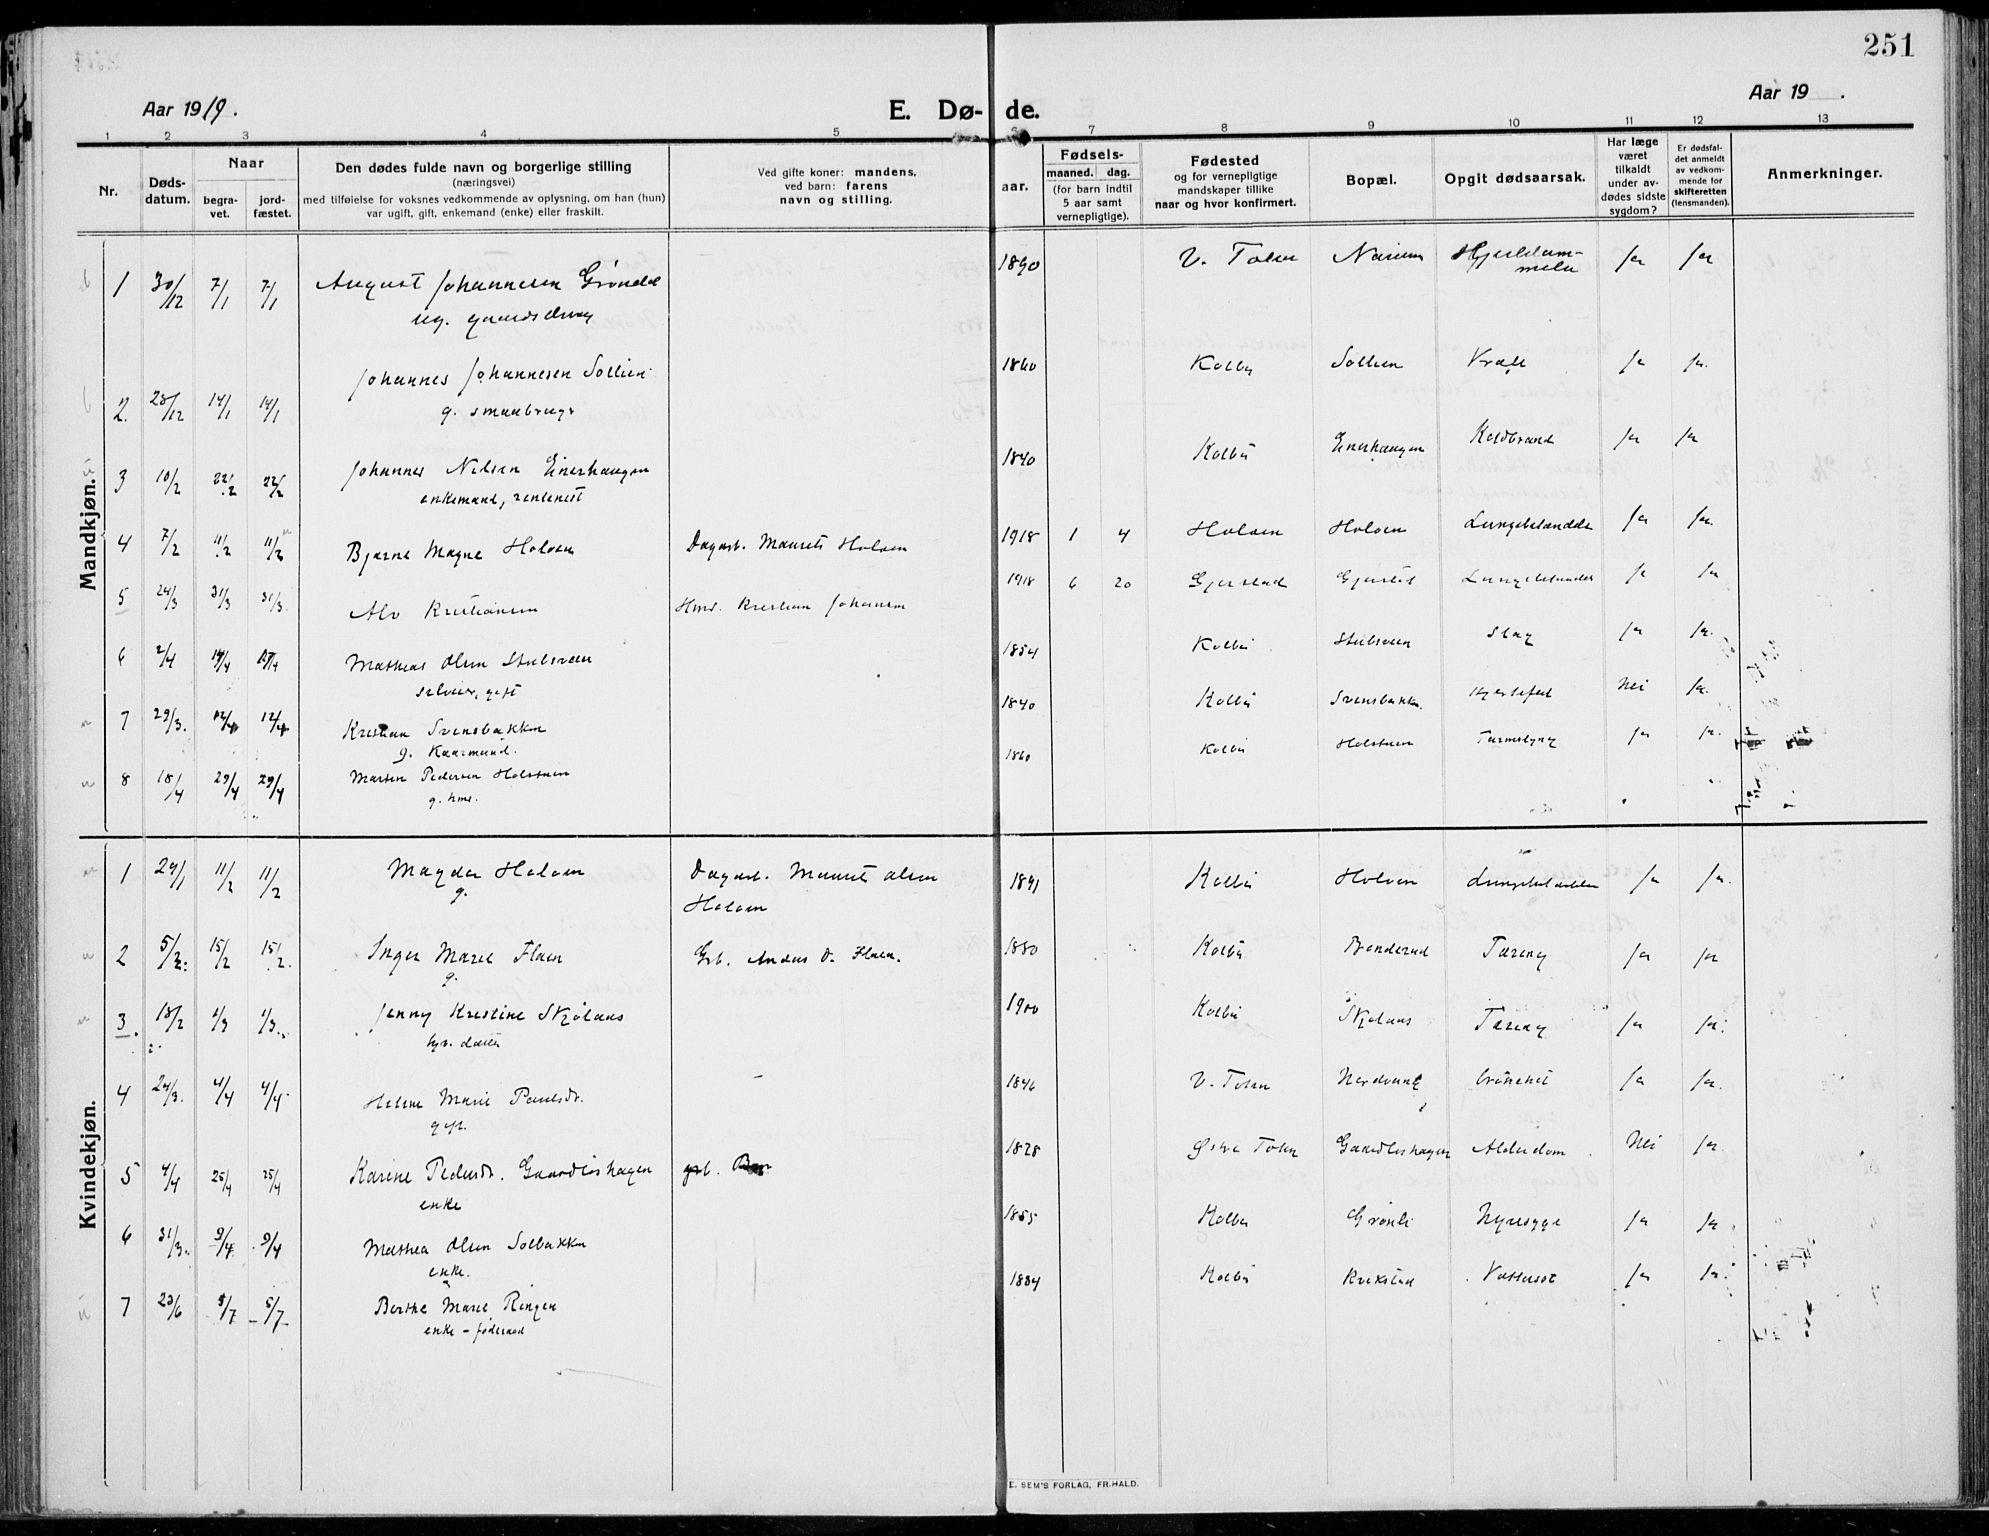 251
Aar 1919.
E. Dø- de.
Aar 19 .
1 2 3 4 5 6 7 8 9 10 11 12 13
Nr.
Døds-
datum.
Naar
begra-
vet.
jord-
fæstet.
Den dødes fulde navn og borgerlige stilling
(næringsvei)
med tilføielse for voksnes vedkommende av oplysning, om han (hun)
var ugift, gift, enkemand (enke) eller fraskilt.
Ved gifte koner: mandens,
ved barn: farens
navn og stilling.
aar.
Fødsels-
maaned. dag.
(for barn indtil
5 aar samt
vernepligtige).
Fødested
og for vernepligtige
mandskaper tillike
naar og hvor konfirmert.
Bopæl.
Opgit dødsaarsak.
Har læge
været
tilkaldt
under av-
dødes sidste
sygdom?
Er dødsfal-
det anmeldt
av vedkom-
mende for
skifteretten
(lensmanden).
Anmerkninger.
Mandkjøn.
1 30/12 7/1 7/1 August Johannesen Grøndal 1890 V. Toten Narum ja ja
ug.
2. 28/12 14/1 14/1 Johannes Johannesen Sollien 1860 Kolbu Sollien Kræft ja ja.
g. smaabruger
3 10/2 22/2 22/2 Johannes Nilsen Enerhaugen 1840 Kolbu Enerhaugen Koldbrand ja ja
enkemand, rentenist
4 7/2 11/2 11/2 Bjarne Magne Holoen Dagarb. Maurits Holoen 1918 1 4 Holoen Holoen Lungebetændelse ja ja.
5 24/3 31/3 31/3. Alv Kristiansen Hmd. Kristian Johansen 1918 6 20 Gjerstad Gjerstad Lungebetændelse ja ja
6 2/4 14/4 Mathias Olsen Stubsveen 1854 Kolbu Stubsveen Slag ja ja.
selveier, gift
7 29/3. 12/4 12/4 Kristian Svensbakken 1840 Kolbu Svensbakken. Hjertefeil Nei ja.
g. Kaarmand.
8 18/4 29/4 29/4 Marten Pedersen Holstuen 1860 Kolbu Holstuen ja ja.
g. hmd.
Kvindekjøn.
1 11/2 11/2 Magda Holoen Dagarb. Maurits Olsen 1891 Kolbu Holoen Lungebetændelse ja ja.
g. Holoen
2 5/2. 15/2 15/2. Inger Marie Flaen Grb. Anders O. Flaen. 1880 Kolbu Banderud Tæring ja ja
g.
3. 18/2 1/3 1/3. Jenny Kristine Skjølaas 1900 Kolbu Skjølaas Tæring ja ja.
grb. datter
4 24/3. 4/4 4/4. Helene Marie Paulsdr. 1846 V. Toten Nordvang bronchit ja ja.
gift.
5 4/4 25/4 25/4 Karine Pedersdr. Gaardløshagen grb. 1828 Østre Toten Gaardløshagen Alderdom Nei ja.
enke
6 31/3. 9/4 9/4 Mathea Olsen Solbakken 1855 Kolbu Grønli Nyresyge ja ja
enke.
7 23/6 5/7 5/7 Berthe Marie Ringen 1834 Kolbu Krikstad Vattersot ja ja.
enke - føderaad
E. SEM'S FORLAG, FR.HALD.